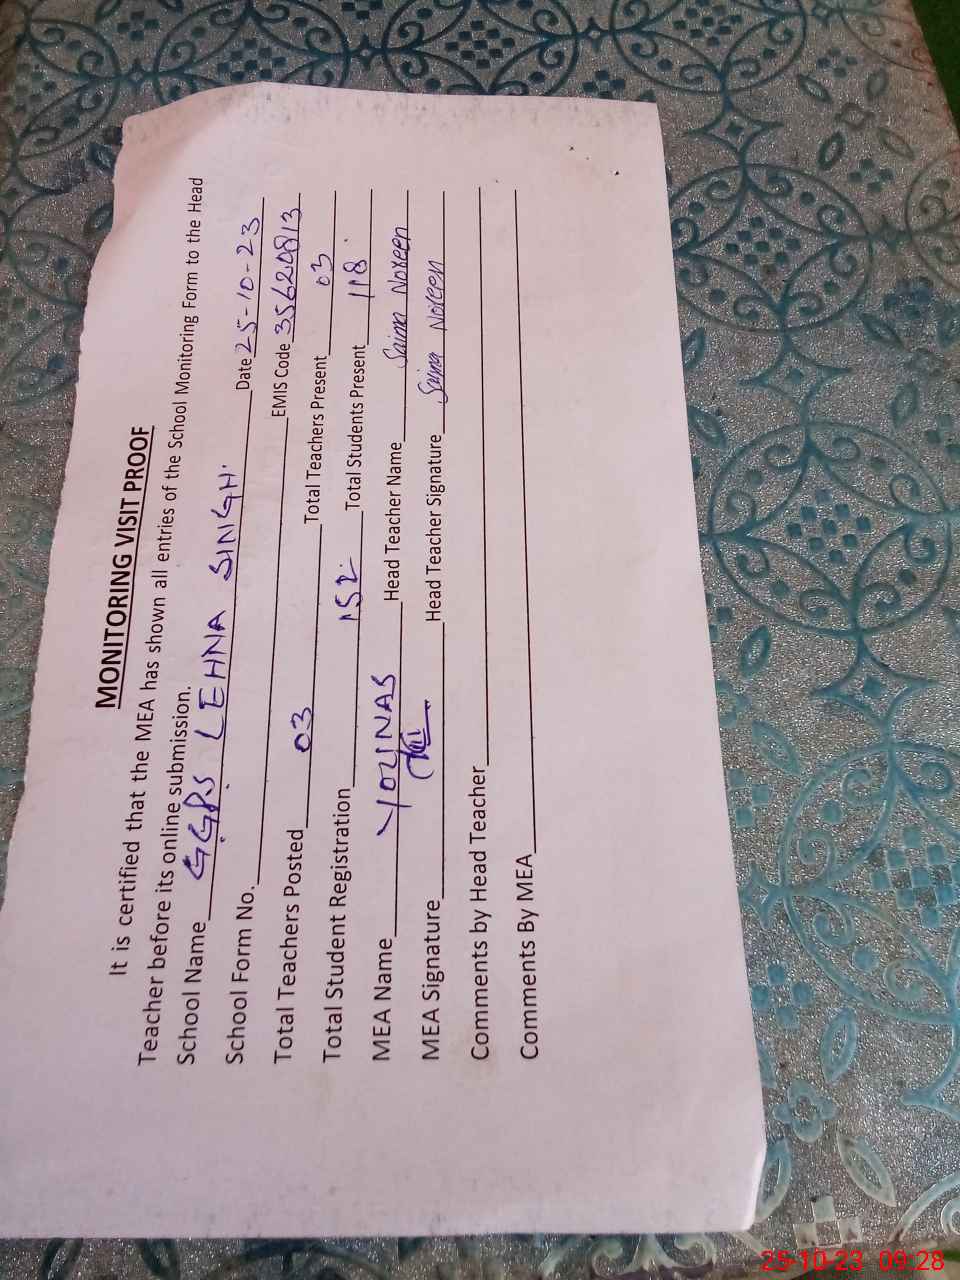 MONITORING VISIT PROOF
It is certified that the MEA has shown all entries of the School Monitoring Form to the Head
Teacher before its online submission.
School Name GGPS LEHNA SINGH. Date 25-10-23
School Form No. EMIS Code 35620813
Total Teachers Posted 03 Total Teachers Present 03
Total Student Registration 152 Total Students Present 118
MEA Name YOUNAS Head Teacher Name Saima Noreen
MEA Signature Head Teacher Signature Saima Noreen
Comments by Head Teacher
Comments By MEA
25-10-23 09:28